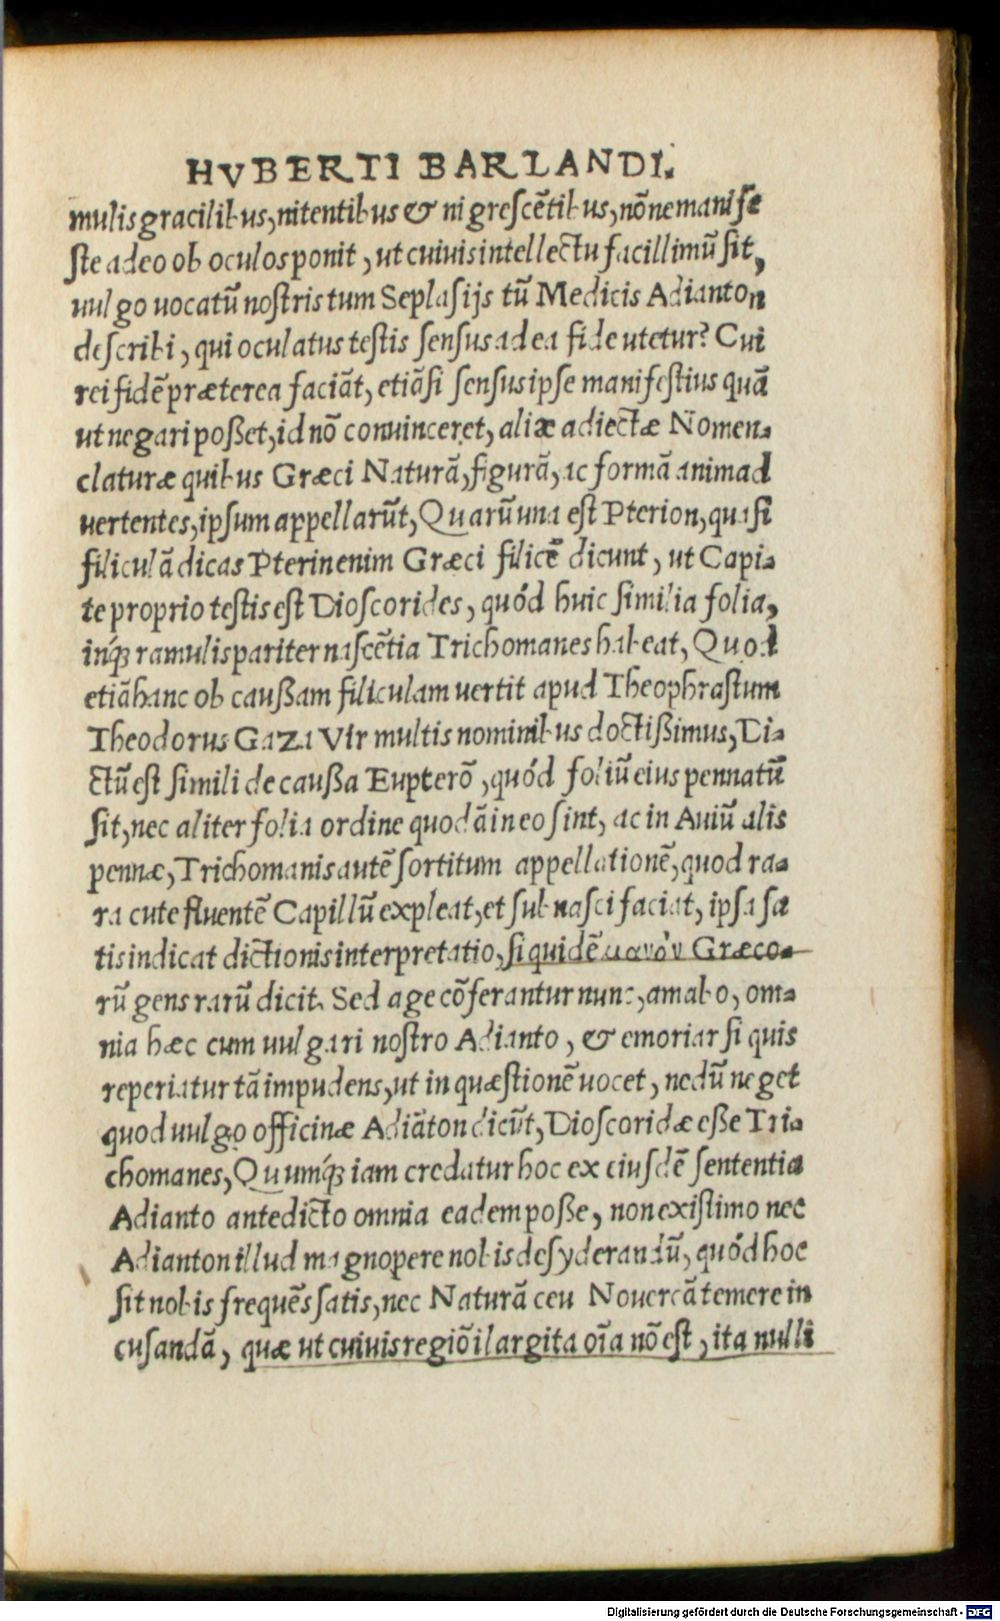 HVBERTI BARLANDI.
mulis gracilibus, nitentibus & nigrescẽtibus, nõne manife
ste adeo ob oculos ponit, ut cuiuis intellectu facillimũ sit,
uulgo uocatũ nostris tum Seplasijs tũ Medicis Adianton
describi, qui oculatus testis sensus ad ea fide utetur? Cui
rei fidẽ præterea faciãt, etiãsi sensus ipse manifestius quã
ut negari poßet, id nõ conuinceret, aliæ adiectæ Nomen-
claturæ quibus Græci Naturã, figurã, ac formã animad
uertentes, ipsum appellarũt, Quarũ una est Pterion, quasi
filiculã dicas Pterin enim Græci filicẽ dicunt, ut Capi-
te proprio testis est Dioscorides, quód huic similia folia,
inq́ꝫ ramulis pariter nascẽtia Trichomanes habeat, Quod
etiã hanc ob caußam filiculam uertit apud Theophrastum
Theodorus Gaza Vir multis nominibus doctißimus, Di-
ctũ est simili de caußa Eupterõ, quód foliũ eius pennatũ
sit, nec aliter folia ordine quodã in eo sint, ac in Auiũ alis
pennæ, Trichomanis autẽ sortitum appellationẽ, quod ra-
ra cute fluentẽ Capillũ expleat, et sub nasci faciat, ipsa sa
tis indicat dictionis interpretatio, siquidẽ μανὸν Græco-
rũ gens rarũ dicit. Sed age cõferantur nunc, amabo, om-
nia hæc cum uulgari nostro Adianto, & emoriar si quis
reperiatur tã impudens, ut in quæstionẽ uocet, nedũ neget
quod uulgo officinæ Adiãton dicũt, Dioscoridæ eße Tri-
chomanes, Quumq́ꝫ iam credatur hoc ex eiusdẽ sententia
Adianto antedicto omnia eadem poße, non existimo nec
Adianton illud magnopere nobis desyderandũ, quód hoc
sit nobis frequẽs satis, nec Naturã ceu Nouercã temere in
cusandã, quæ ut cuiuis regiõi largita oĩa nõ est, ita nulli
Digitalisierung gefördert durch die Deutsche Forschungsgemeinschaft - DFG